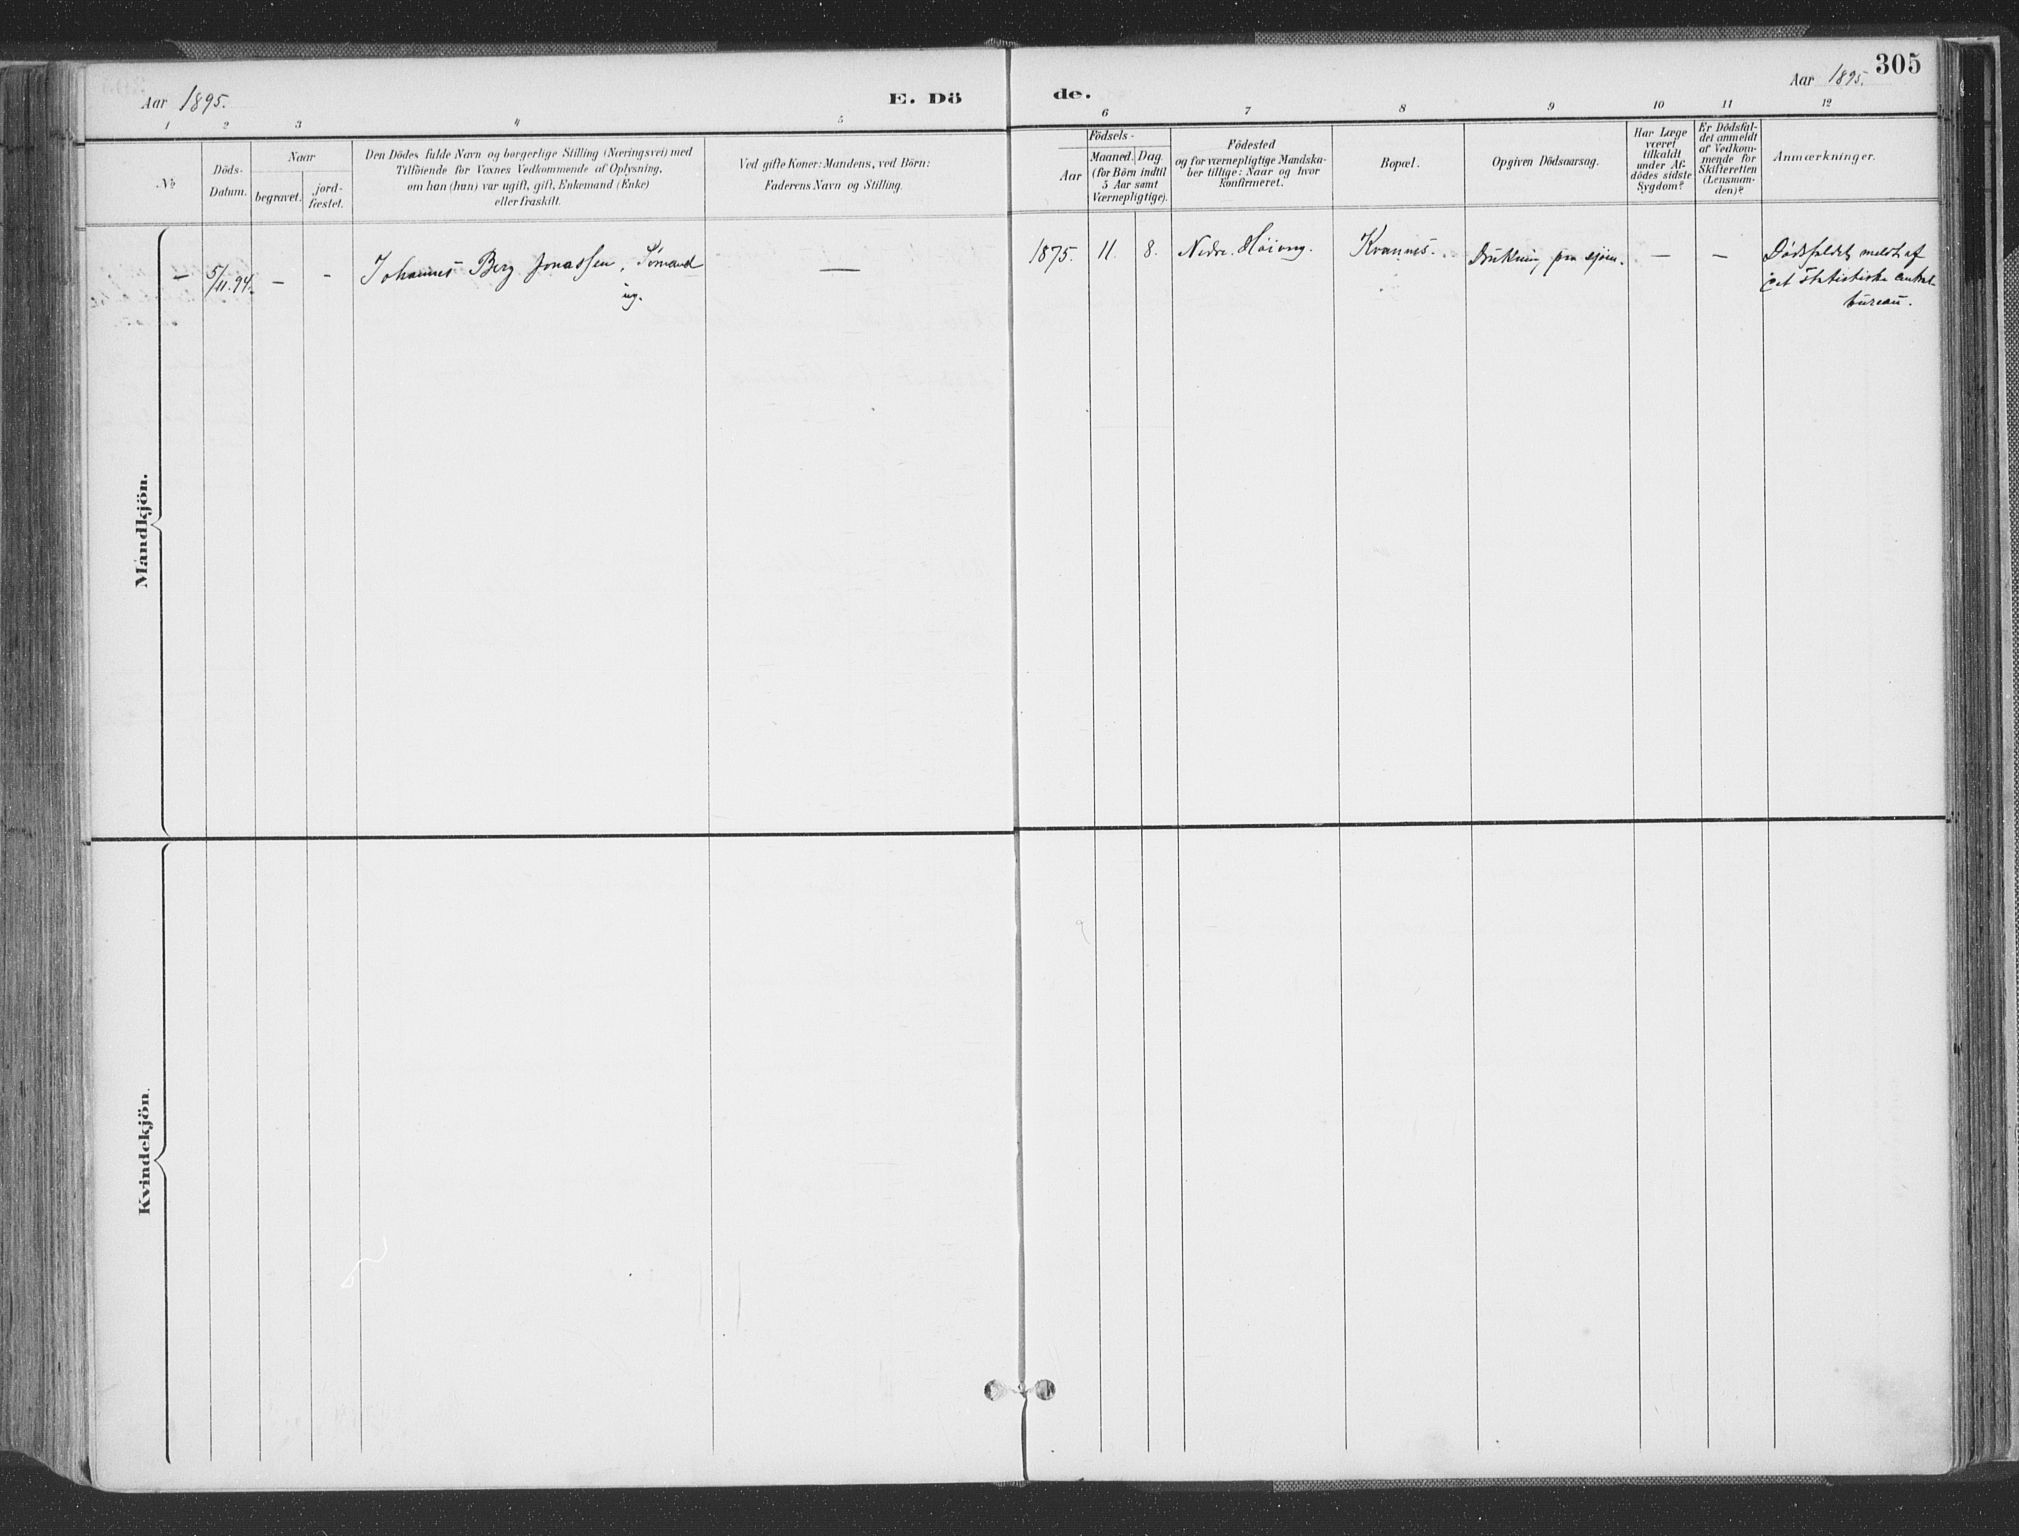 Aar 1895.
E. Dö
de.
Aar 1895.
305
1 2 3 4 5 6 7 8 9 10 11 12
№
Döds-
Datum.
Naar
begravet.
jord-
fæstet.
Den Dödes fulde Navn og borgerlige Stilling (Næringsvei) med
Tilföiende for Voxnes Vedkommende af Oplysning,
om han (hun) var ugift, gift, Enkemand (Enke)
eller fraskilt.
Ved gifte Koner: Mandens, ved Börn:
Faderens Navn og Stilling.
Födsels-
Aar
Maaned. Dag.
(for Börn indtil
5 Aar samt
Værnepligtige).
Födested
og for værnepligtige Mandska-
ber tillige: Naar og hvor
konfirmeret.
Bopæl.
Opgiven Dödsaarsag.
Har Læge
været
tilkaldt
under Af-
dödes sidste
Sygdom?
Er Dödsfal-
det anmeldt
af Vedkom-
mende for
Skifteretten
(Lensman-
den)?
Anmærkninger.
Mandkjön.
— 5/11.94. — - Johannes Berg Jonassen, Sømand — 1875. 11. 8. Nedre Høiong. Krannes. Drukning paa sjøen. — — Dødsfaldet meldt af
ug.
det statistiske central
bureau.
Kvindekjön.